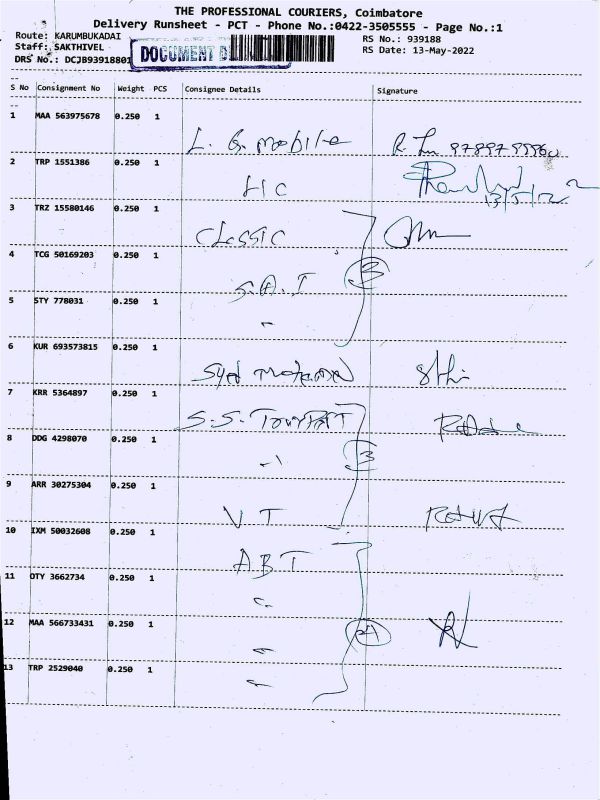 THE PROFESSIONAL COURIERS, Coimbatore
Delivery Runsheet - PCT - Phone No.:0422-3505555 - Page No.:1
Route: KARUMBUKADAI RS No.: 939188
Staff: SAKTHIVEL DOCUMENT RS Date: 13-May-2022
DRS No.: DCJB93918801
S No Consignment No Weight PCS Consignee Details Signature
1 MAA 563975678 0.250 1 L. G. mobile
2 TRP 1551386 0.250 1 LIC 13/5/22
3 TRZ 15580146 0.250 1 CLASSIC
4 TCG 50169203 0.250 1 S.A.T 3
5 STY 778031 0.250 1
6 KUR 693573815 0.250 1 Syed
7 KRR 5364897 0.250 1 S.S.
8 DDG 4298070 0.250 1 3
9 ARR 30275304 0.250 1 VT
10 IXM 50032608 0.250 1 ABT
11 OTY 3662734 0.250 1
12 MAA 566733431 0.250 1 4
13 TRP 2529040 0.250 1